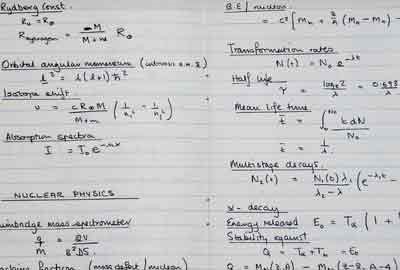 Rydberg Const.
R₀ = R∞
R hydrogen = M / M+m R∞
Orbital angular momentum
l² = l(l+1)ħ²
Isotope shift.
υ = cR∞M / M+m ( 1/n₁² - 1/n₂² )
Absorption spectra
I = I₀e^-nσx
NUCLEAR PHYSICS
mass spectrometer
q/m =
(mass defect / nucleon)
B.E / nucleon
= c² [ Mn + Z/A (MH - Mn) -
Transformation rates.
N(t) = N₀ e^-λt
Half life
τ = loge2 / λ = 0.693 / λ
Mean life time
t̄ = ∫ t dN / N₀
t̄ = 1/λ
Multistage decays.
N₂(t) = N₁(0) λ₁ / λ₂ - λ₁ ( e^-λ₁t -
α - decay
Energy released E₀ = Tα ( 1 +
Stability against
Q = Tα + Tb = E₀